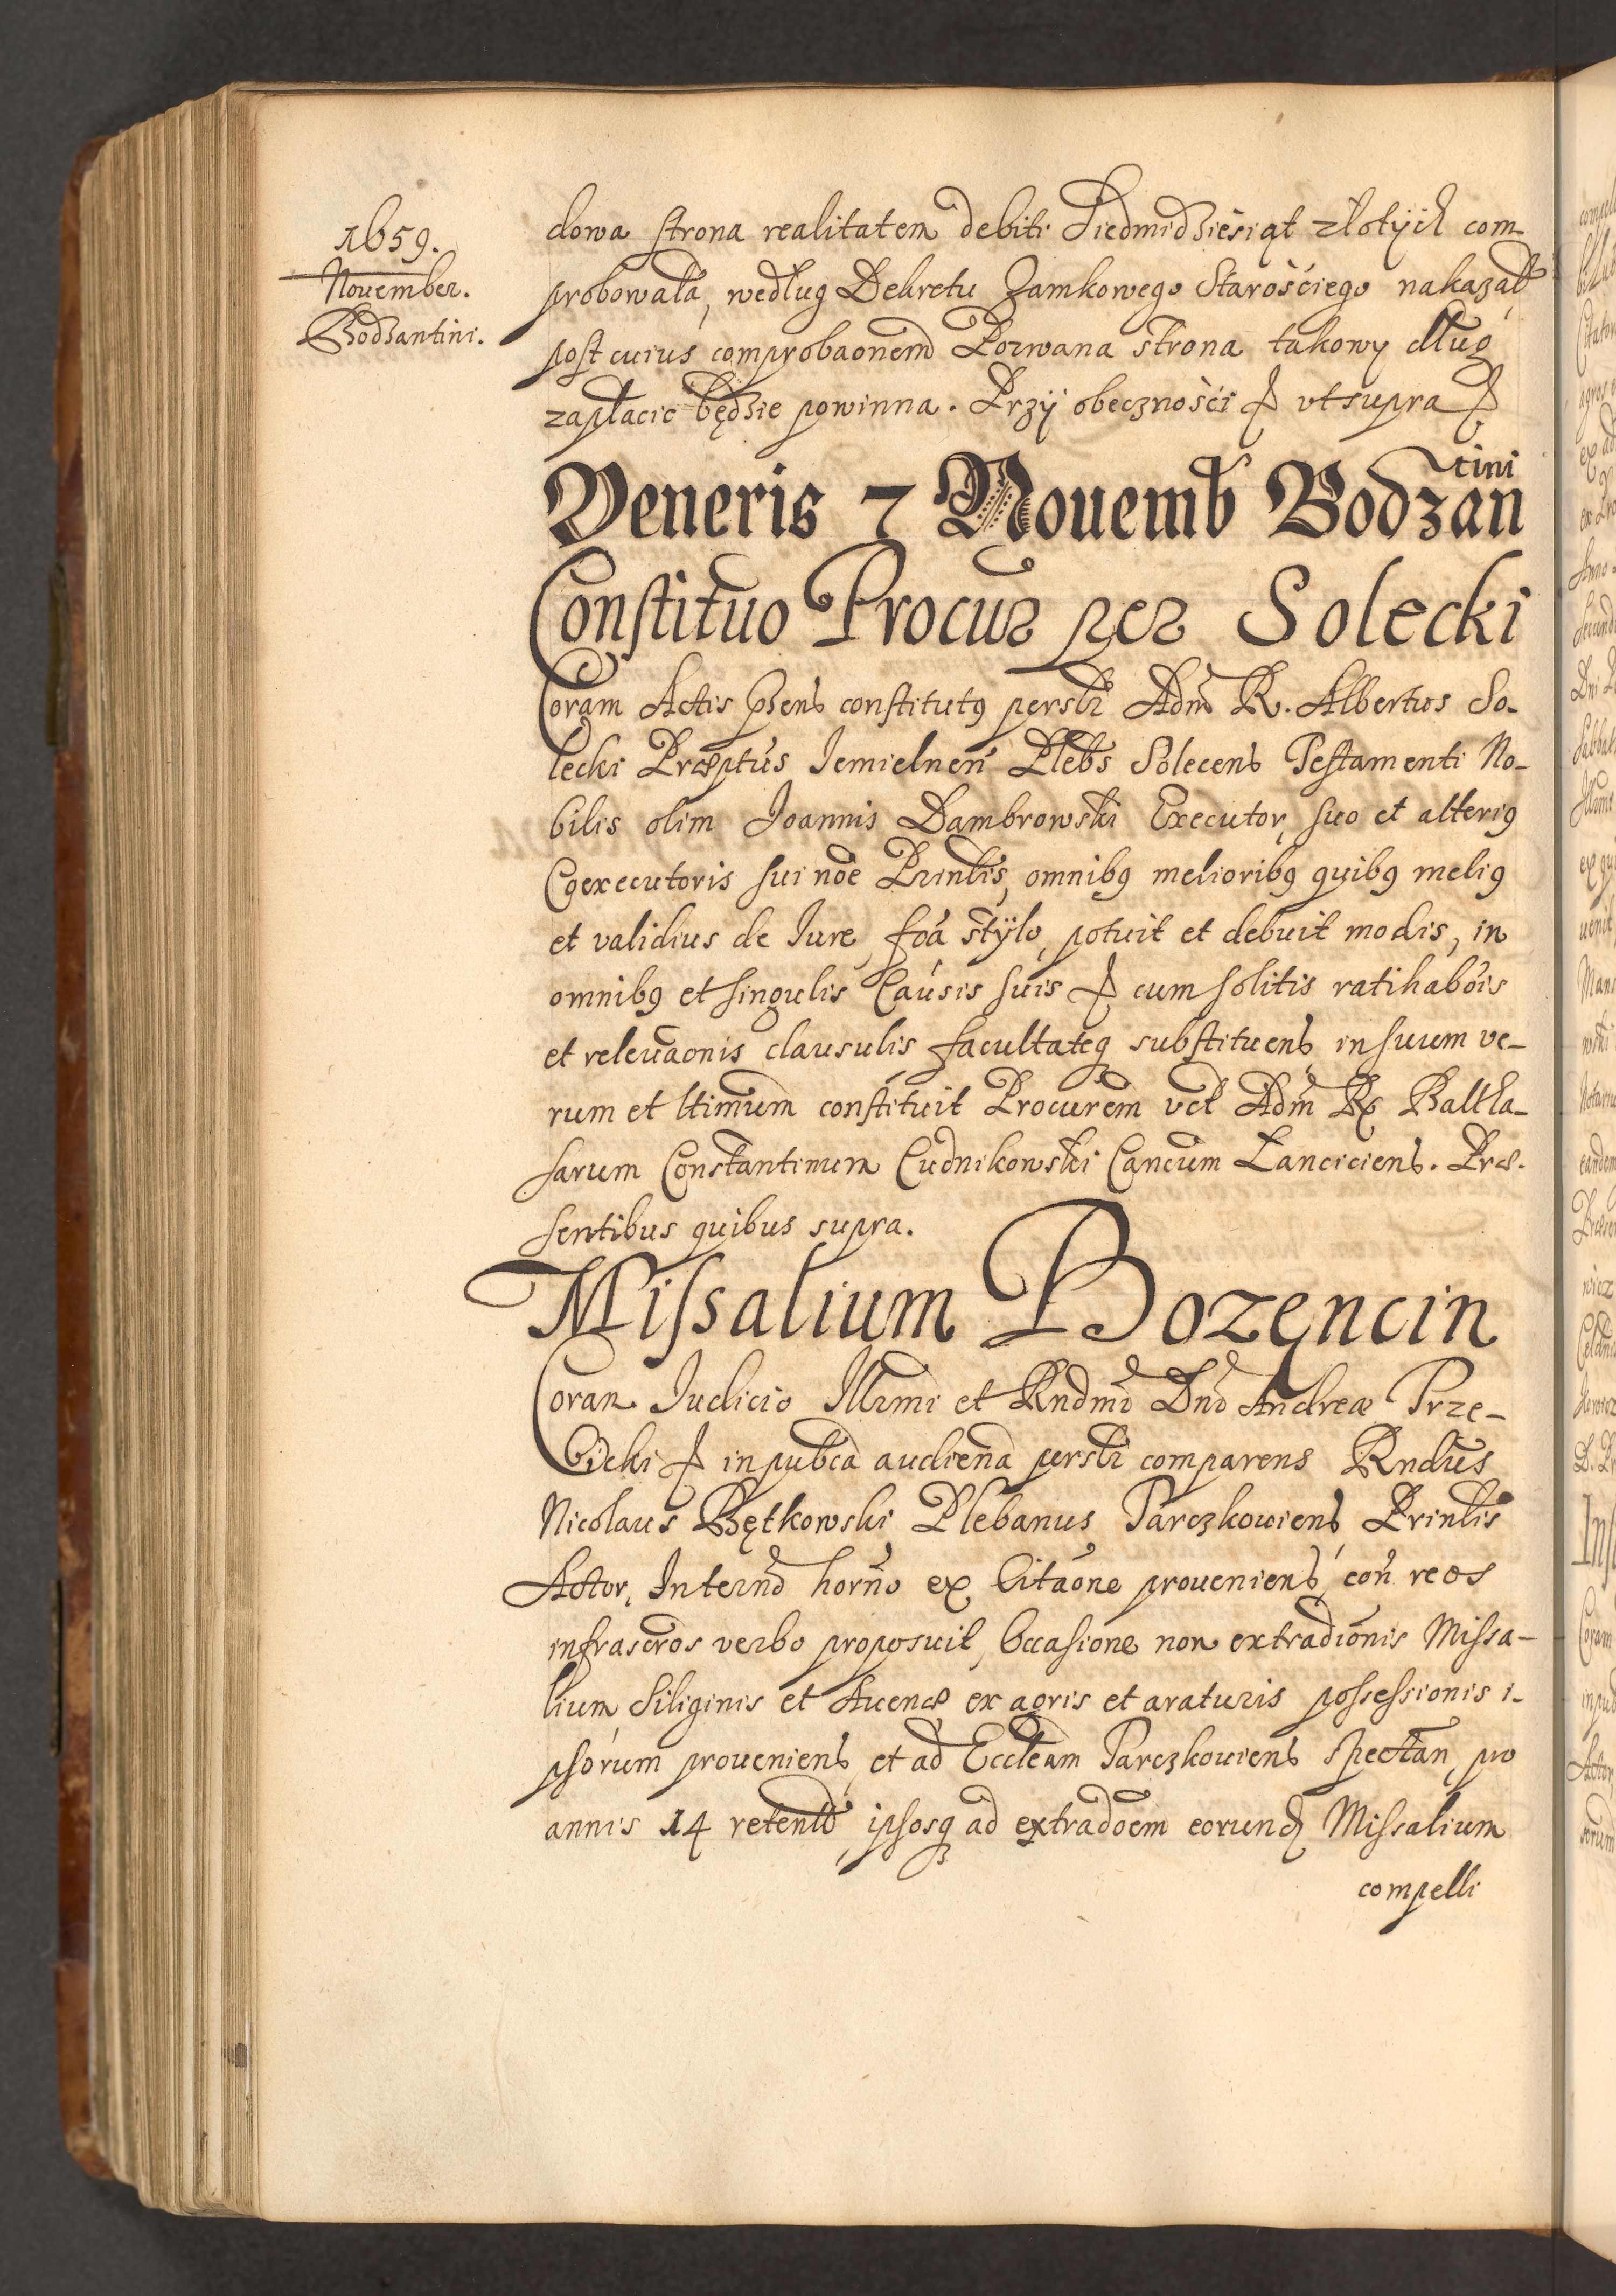 1659.
November.
Bodzantini.
dowa strona realitatem debiti Siedmidziesiąt złotych com-
probowała, według Dekretu Zamkowego Starościego nakazał
post cuius comprobaonem Pozwana strona takowy dług
zapłacic będzie powinna. Przy obecznosci ut supra
Veneris 7 Nouemb Bodzan
tini
Constituo Procur per Solecki
Coram Actis pñs constitutg persłr Adm R. Albertus So-
lecki Præptus Iemielnen Plebs Solecens Testamenti No-
bilis olim Joannis Dambrowski Executor, suo et alterig
Coexecutoris sui noe Prinlis, omnibg melioribg quibg melig
et validius de Iure, foa stylo, potuit et debuit modis, in
omnibg et singulis Causis suis cum solitis ratihabois
et releuaonis clausulis facultateq substituens in suum ve-
rum et ltimum constituit Procurem vel Adm R. Baltha-
sarum Constantinum Cudnikowski Cancum Lanciciens. Præ-
sentibus quibus supra.
Missalium Bozęncin
Coram Iudicio Illrmi et Rndmi Dni Andreæ Trze-
bicki in pubca audiena persłr comparens Rndus
Nicolaus Bętkowski Plebanus Tarczkouiens Prinlis
Actor, In termo horno ex Citaone proueniens, con reos
infrascros verbo proposuit, Occasione non extradionis Missa-
lium Siliginis et Auenæ ex agris et araturis possessionis i-
psorum proueniens, et ad Eccleam Tarczkouiens spectan, pro
annis 14 retent ipsosq ad extradoem eorund Missalium
compelli